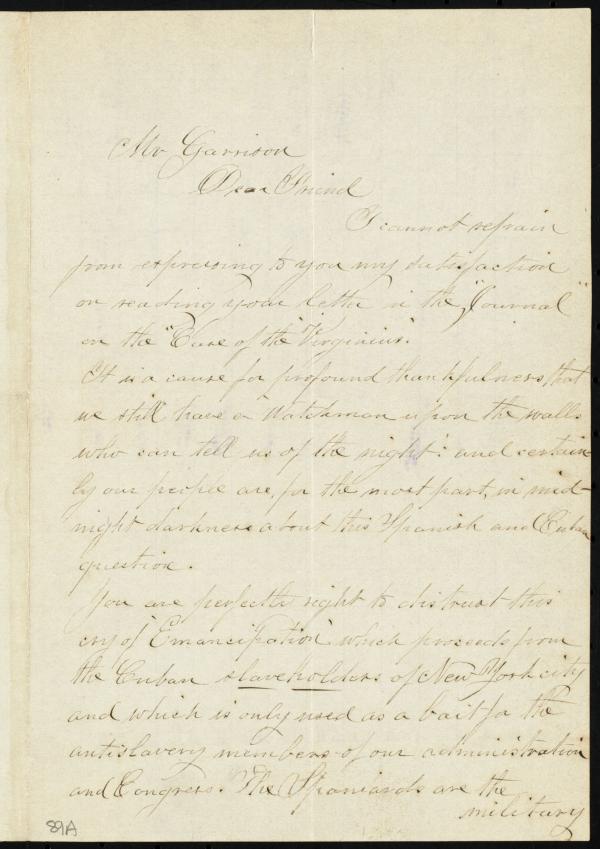 Mr Garrison
Dear Friend
I cannot refrain
from expressing to you my satisfaction
on reading your letter in the "Journal"
on the "Case of the Virginius".
It is a cause for profound thankfulness, that
we still have a Watchman upon the walls
who can tell us of the night: and certain-
ly our people are, for the most part, in mid-
night darkness about this Spanish and Cuban
question.
You are perfectly right to distrust this
cry of "Emancipation" which proceeds from
the Cuban slaveholders of New York city
and which is only used as a bait for the
antislavery members of our administration
and Congress. The Spaniards are the
military
89A